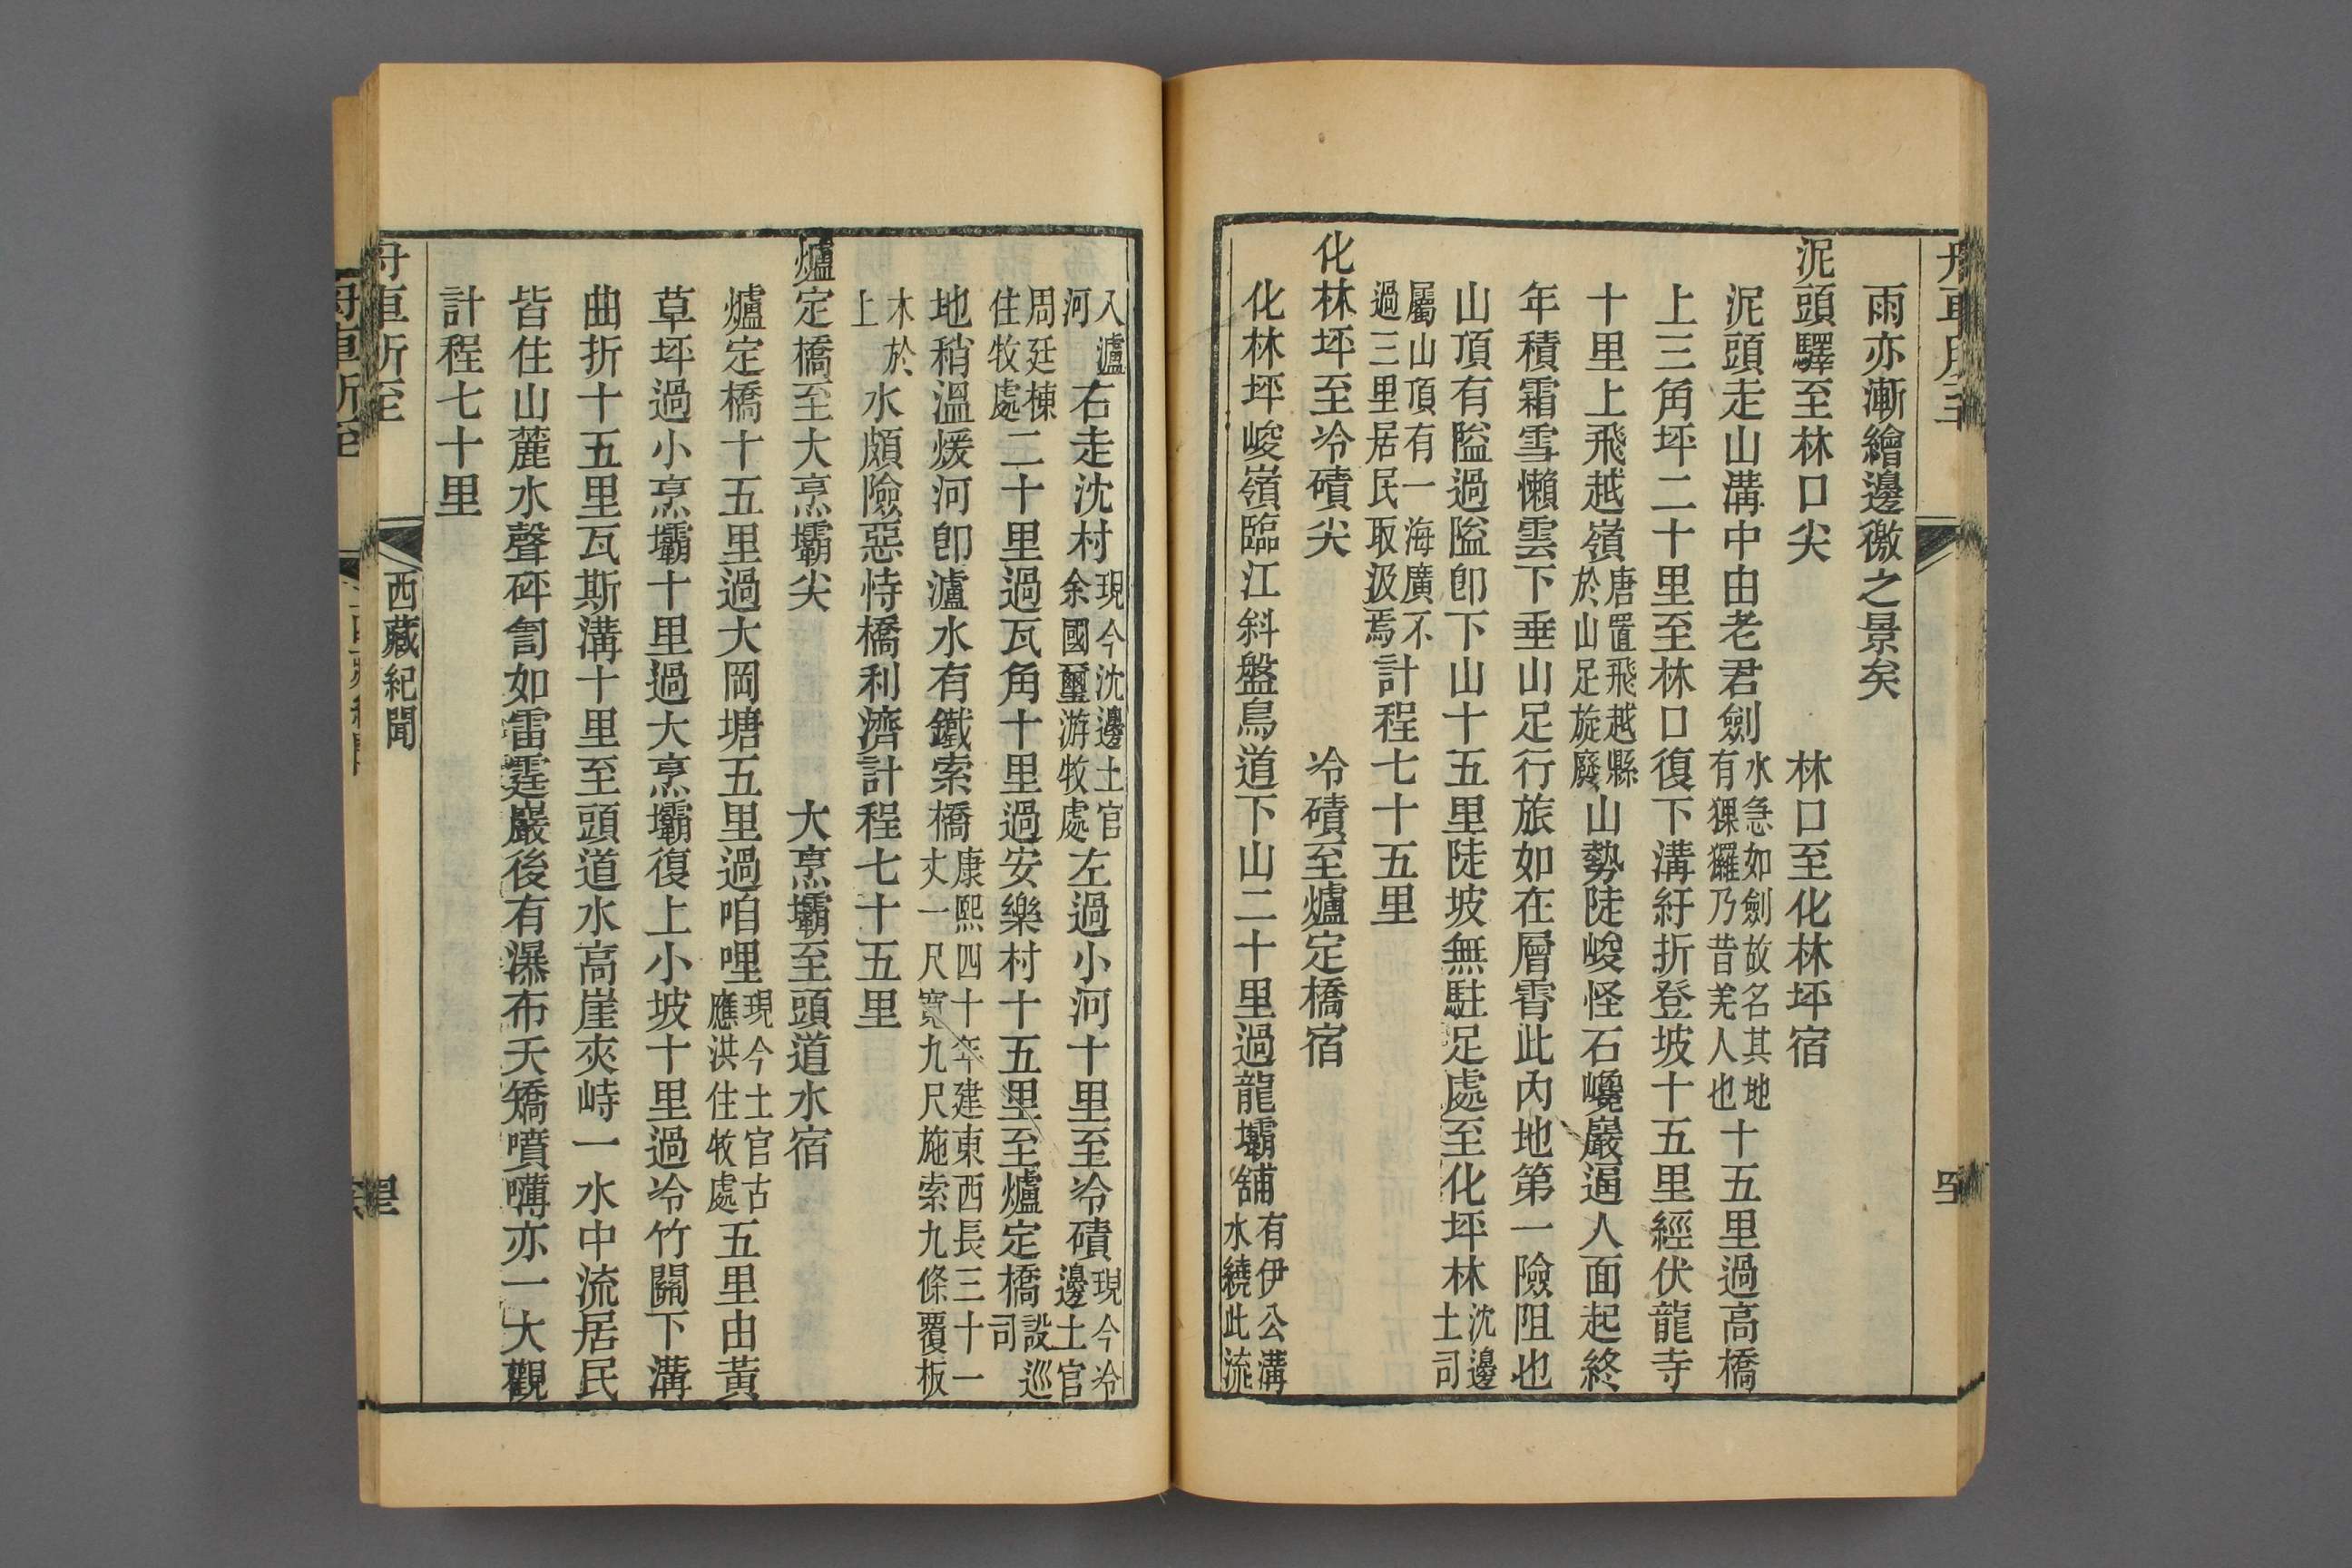 雨亦漸繪邊徼之景矣
泥頭驛至林口尖　林口至化林坪宿
泥頭走山溝中由老君劍水急如劍故名其地有猓玀乃昔羌人也十五里過高橋
上三角坪二十里至林口復下溝紆折登坡十五里經伏龍寺
十里上飛越嶺唐置飛越縣於山足旋廢山勢陡峻怪石巉巖逼人面起終
年積霜雪懶雲下垂山足行旅如在層霄此內地第一險阻也
山頂有隘過隘卽下山十五里陡坡無駐足處至化坪林沈邊土司
屬山頂有一海廣不過三里居民取汲焉計程七十五里
化林坪至冷磧尖　冷磧至爐定橋宿
化林坪峻嶺臨江斜盤鳥道下山二十里過龍壩舖有伊公溝水繞此流
入瀘河右走沈村現今沈邊土官余國璽游牧處左過小河十里至冷磧現今冷邊土官
周廷棟住牧處二十里過瓦角十里過安樂村十五里至爐定橋設巡司
地稍溫煖河卽瀘水有鐵索橋康熙四十年建東西長三十一丈一尺寬九尺施索九條覆板
木於上水頗險惡恃橋利濟計程七十五里
爐定橋至大烹壩尖　大烹壩至頭道水宿
爐定橋十五里過大岡塘五里過咱哩現今土官古應洪住牧處五里由黃
草坪過小烹壩十里過大烹壩復上小坡十里過冷竹關下溝
曲折十五里瓦斯溝十里至頭道水高崖夾峙一水中流居民
皆住山麓水聲砰訇如雷霆巖後有瀑布夭矯噴嚩亦一大觀
計程七十里
舟車所至
西藏紀聞